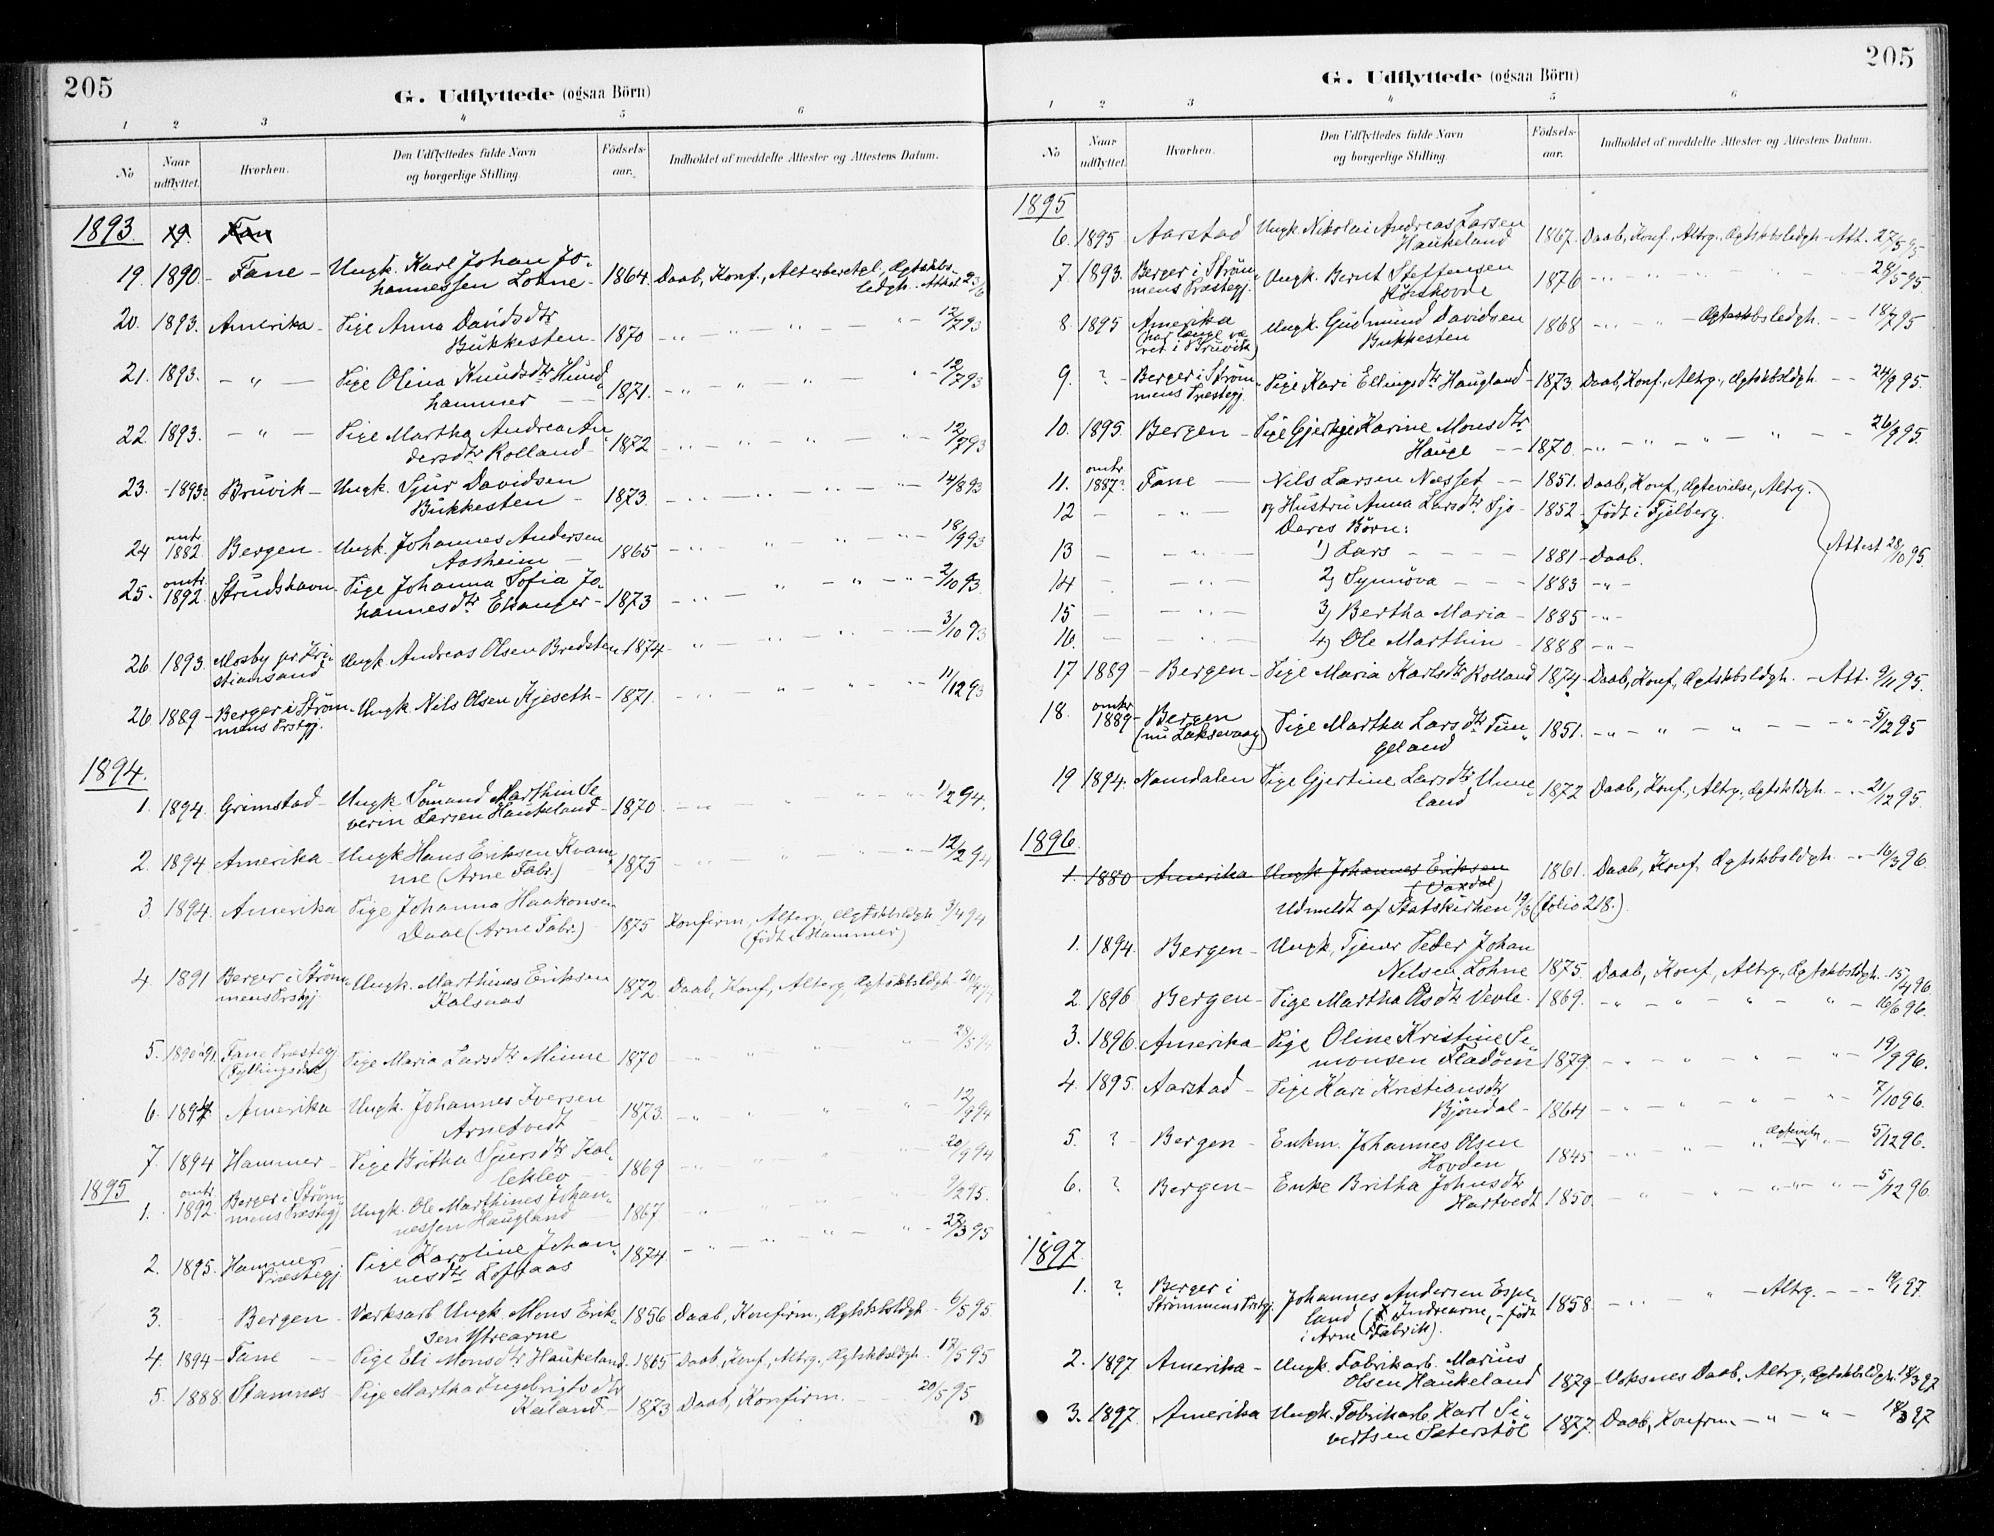 205
G. Udflyttede (ogsaa Börn)
1 2 3 4 5 6
No
Naar udflyttet.
Hvorhen.
Den Udflyttedes fulde Navn og borgerlige Stilling.
Födsels-aar.
Indholdet af meddelte Attester og Attestens Datum.
1893. 19. Fan
19. 1890 - Fane - Ungk. Karl Johan Jo-
hannessen Lohne - 1864. Daab, Konf., Alterberetgl., Ægtskbs-
ledgh. Attest 23/6
20. 1893. Amerika - Pige Anna Davidsdtr
Bukkesten - 1870 - " - " " - " - 12/7 93
21. 1893. - " - Pige Olina Knudsdtr Hund-
hammer - - 1871. - " - " " - " - 12/7 93
22. 1893. - " - Pige Martha Andrea An-
dersdtr Rolland - 1872 - " - " - " - " - 12/7 93
23. - 1893. Bruvik - Ungk. Sjur Davidsen
Bukkesten - 1873. - " - " - " - " - 14/8 93
24 omtr 1882. Bergen - Ungk. Johannes Andersen
Aasheim - 1865 - " - " - " - " 18/9 93
25. omtr. 1892. Strudshavn Pige Johanna Sofia Jo-
hannesdtr Ekanger - 1873 - " - " - " - " - 2/10 93.
26 1893 Mosby pr Kri-
stiansand Ungk Andreas Olsen Bredsten - 1874 - " - " - " - 3/10 93
26 1889 - Berger i Ström-
mens Prstgj. Ungk. Nils Olsen Kjeseth - 1871. - " - " - " - 11/12 93
1894.
1. 1894. Grimstad - Ungk Tömand Marthin Se-
verin Larsen Haukeland - 1870 - " - " " - " 1/2 94.
2. 1894 Amerika - Ungk Hans Eriksen Kvam-
me (Arne Fabr.) - 1875 - " - " - " - 12/2 94
3. 1894. Amerika Pige Johanna Haakonsen
Daae (Arne Fabr.) - 1875 Konfirm, Alterg., Ægtskbsldgh 3/4 94
(født i Hammer)
4 1891 Berger i Ström-
mens Prstgj. Ungk. Marthines Eriksen
Kalsaas 1872 Daab, Konf, Alterg, Ægtskbsldgh 20/4 94
5. 1890 à 91 Fane Præstegj
(Fyllingsdal) Pige Maria Larsdtr Minne 1870 - " - " - " - 28/5 94
6. 1894 Amerika - Ungk. Johannes Iversen
Arnetvedt - 1873. - " - " - " - 12/9 94
7. 1894 Hammer - Pige Britha Sjursdtr Kal-
leklev - 1869 - " - " - " - 20/9 94
1895
1. omtr 1892. Berger i Ström-
mens Præstegj Ungk. Ole Marthines Johan-
nessen Haugland - 1867 - " - " - " 9/2 95.
2. 1895. Hammer
Præstegj Pige Karoline Johan-
nesdtr Loftaas 1874. - " - " - " - 23/3 95
3. - Bergen - Værksarb Ungk. Mons Erik-
sen Ytrearne - 1856 Daab, Konfirm., Ægtskbsldgh - 6/5 95
4. 1894 - Fane - Pige Eli Monsdtr Haukeland - 1865 Daab, Konf, Altrg, Ægtskbsldgh. 17/5 95
5. 1888. Stamnes - Pige Martha Ingebrigtsdtr
Kaland - 1873 Daab, Konfirm. - 20/5 95
205
G. Udflyttede (ogsaa Börn)
1 2 3 4 5 6
No
Naar udflyttet.
Hvorhen.
Den Udflyttedes fulde Navn og borgerlige Stilling.
Födsels-aar.
Indholdet af meddelte Attester og Attestens Datum.
1895
6. 1895 Aarstad Ungk Nikolai Andreas Larsen
Haukeland 1867. Daab, Konf, Altrg. Ægtskbsledgh - Att. 27/5 95
7 1893. Berger i Ström-
mens Præstegj. Ungk. Bernt Steffensen
1876 - " - " - " - 28/5 95.
8 1895 Amerika
(har længe væ-
ret i Bruvik) Ungk. Gudmund Davidsen
Bukkesten 1868 - " - " - Ægteskbsledgh. - - 18/7 95
9. ? - Berger i Ström-
mens Præstegj. Pige Kari Ellingsdtr Haugland - 1873 Daab, Konf., Altrg., Ægtskbsldgh. - - 24/9 95.
10. 1895. Bergen - Pige Gjertje Karine Monsdtr
Hauge - - 1870 - " - " - " - " - " - 26/9 95.
11. omtr 1887? Fane - Nils Larsen Næsset - - 1851. Daab, Konf, Ægtevielse, Altrg.
12 - " - og Hustru Anna Larsdtr Sjo - 1852 - Födt i Fjelberg.
Deres Börn:
13 - " - 1) Lars - - - 1881 - Daab.
Attest 28/10 95.
14 - " - 2) Synnöva - - - 1883 - " -
15 - " - 3) Bertha Maria - 1885 - " -
16. - " - 4) Ole Marthin - 1888 - " -
17 1889 - Bergen - Pige Maria Karlsdtr Rolland 1874 - Daab, Konf, Ægtskbsldgh. - Att. 9/11 95.
18. omtr 1889 - Bergen
(nu Laksevaag) Pige Martha Larsdtr Tun-
geland 1851. - " - " - " - " - 5/12 95
19 1894. Namdalen Pige Gjertine Larsdtr Unne-
land 1872 Daab, Konf., Altrg, Ægtskbldgh. - - 21/12 95.
1896.
1. 1880 Amerika Ungk Johannes Eriksen
(Vaxdal) 1861. Daab, Konf, Ægtskbsldgh. - 16/3 96
Udmeldt af Statskirken 19/3 (folio 218.)
1. 1894. Bergen - Ungk. Tjener Peder Johan
Nilsen Lohne 1875. Daab, Konf, Altrg., Ægtskbsldgh. 15/4 96
2. 1896 Bergen - Pige Martha Olsdtr Vevle - 1869. - " - " - " - 16/6 96.
3. 1896. Amerika - Pige Oline Kristine Si-
monsen Fladöen 1879 - " - " - " - 19/9 96.
4. 1895. Aarstad - Pige Kari Kristiansdtr
Björndal - 1864 - " - " - " - 7/10 96.
5. ? - Bergen - Enkm. Johannes Olsen
Hovden 1845 - " - " - Ægtevielse - 5/12 96.
6. ? Bergen - Enke Britha Johnsdtr
Hartvedt 1850. - " - " - " - 5/12 96.
1897.
1. ? Berger i
Strömmens Prstgj. Johannes Andersen Espe-
land (X Indrearne, - födt
i Arne Fabrik). 1858 - " - " - Altrg. - - 19/1 97
2. 1897 Amerika - Ungk. Fabrikarb. Marius
Olsen Haukeland 1879 - Voksnes Daab, Altrg, Ægtskbldgh. 18/3 97
3. 1897. Amerika Ungk. Fabrikarb. Karl Si-
vertsen Seterstöl 1877. Daab, Konfirm - " - " - 18/3 97